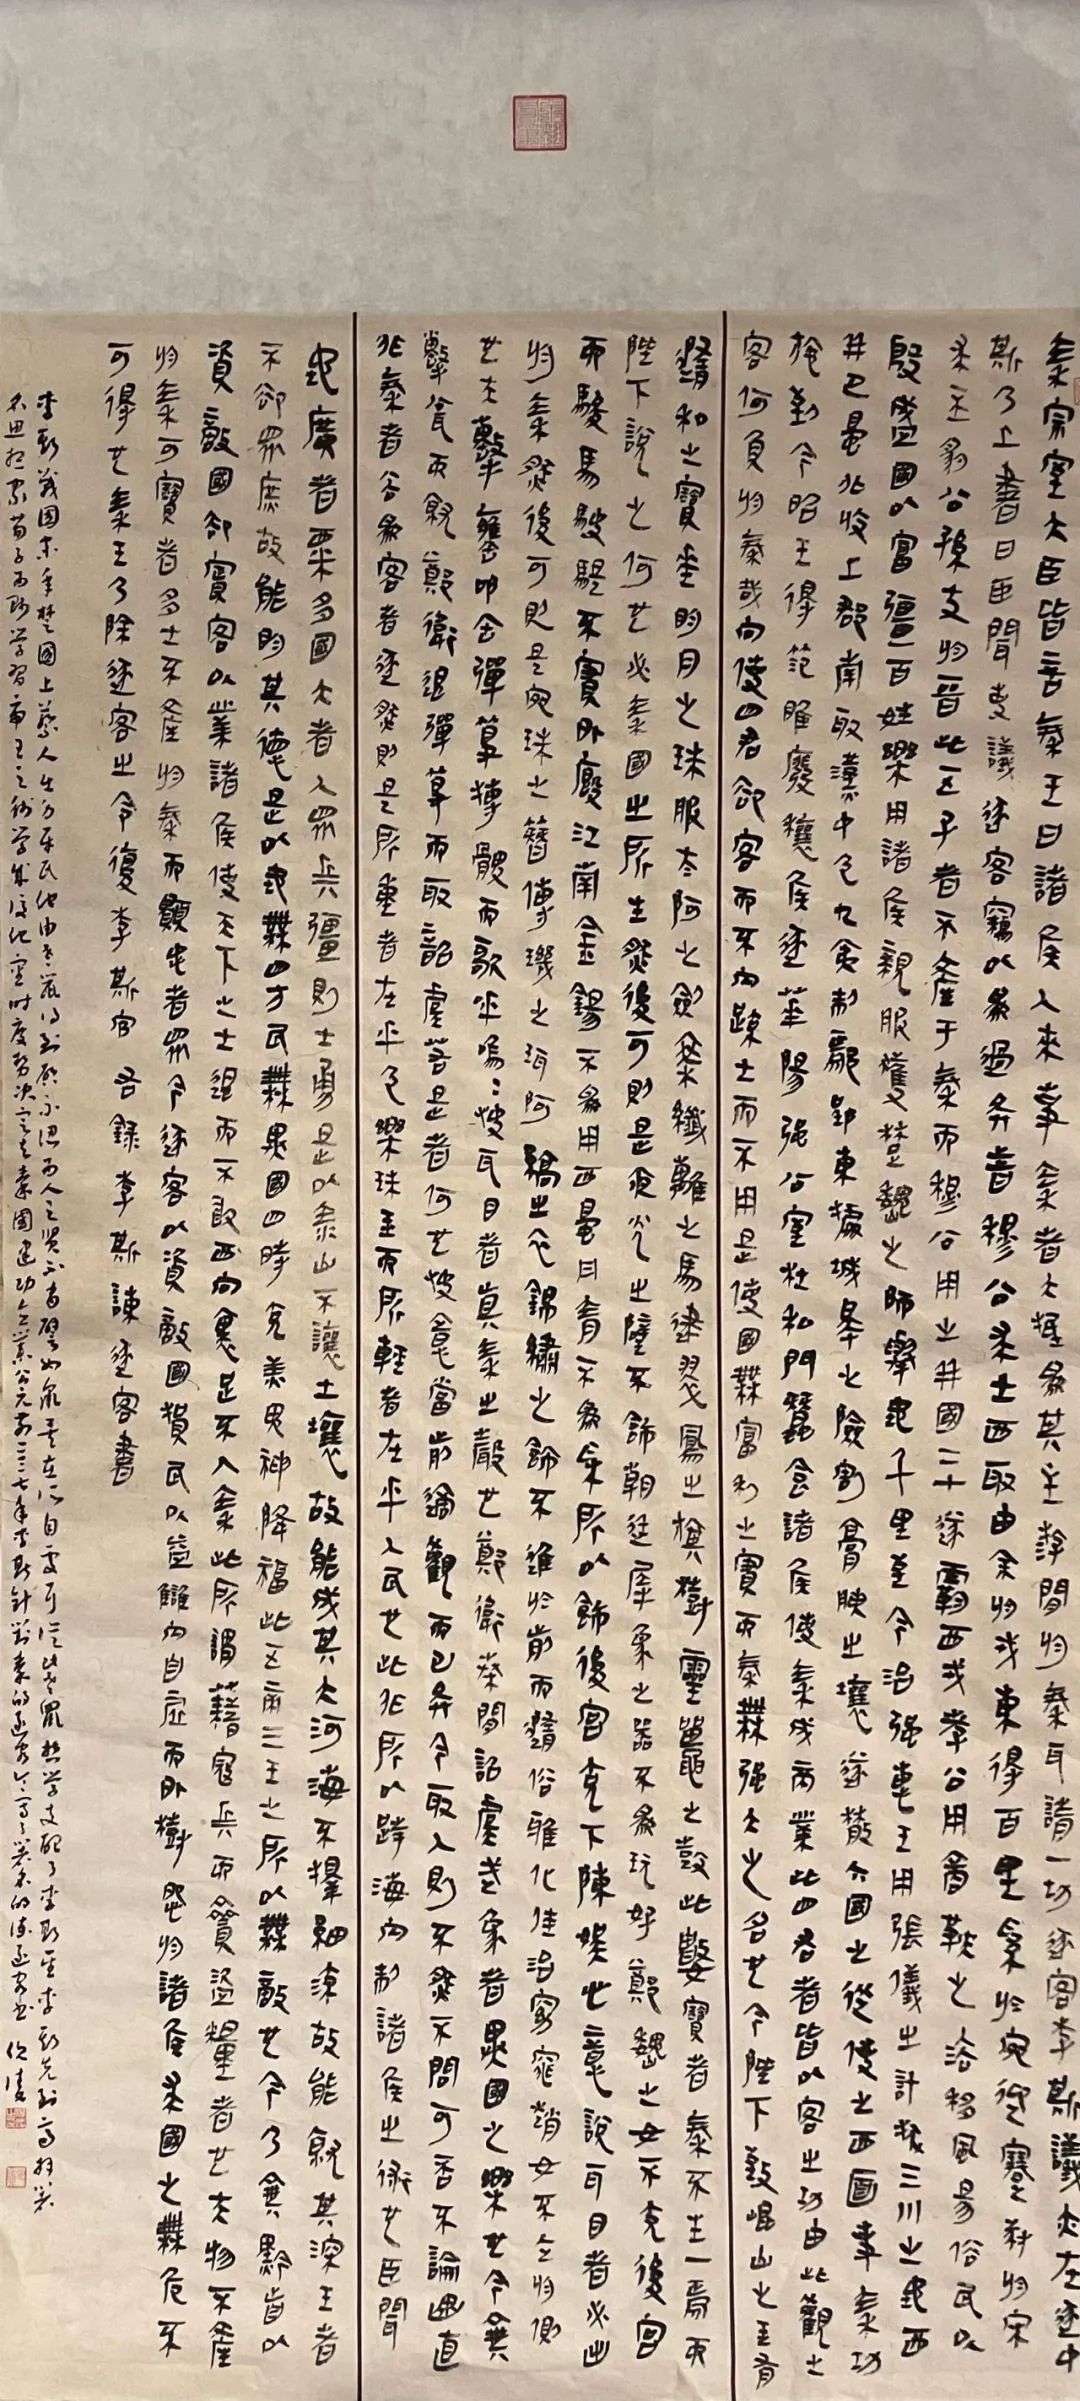 秦宗室大臣皆言秦王曰諸侯人來事秦者大抵為其主游間於秦耳請一切逐客李斯議亦在逐中
斯乃上書曰臣聞吏議逐客竊以為過矣昔穆公求士西取由余於戎東得百里奚於宛迎蹇叔於宋
求丕豹公孫支於晉此五子者不產于秦而穆公用之并國三十遂霸西戎孝公用商鞅之法移風易俗民以
殷盛國以富彊百姓樂用諸侯親服獲楚魏之師舉地千里至今治强惠王用張儀之計拔三川之地西
并巴蜀北收上郡南取漢中包九夷制鄢郢東據城皋之險割膏腴之壤遂散六國之從使之西面事秦功
施到今昭王得范雎廢穰侯逐華陽强公室杜私門蠶食諸侯使秦成帝業此四君者皆以客之功由此觀之
客何負於秦哉向使四君卻客而不內疏士而不用是使國無富利之實而秦無强大之名也今陛下致崑山之玉有
隨和之寶垂明月之珠服太阿之劍乘纖離之馬建翠鳳之旗樹靈鼉之鼓此數寶者秦不生一焉而
陛下說之何也必秦國之所生然後可則是夜光之璧不飾朝廷犀象之器不為玩好鄭魏之女不充後宮
而駿馬駃騠不實外廄江南金錫不為用西蜀丹青不為采所以飾後宮充下陳娛心意說耳目者必出
於秦然後可則是宛珠之簪傅璣之珥阿縞之衣錦繡之飾不進於前而隨俗雅化佳冶窈窕趙女不立於側
也夫擊甕叩缶彈箏搏髀而歌呼嗚嗚快耳目者真秦之聲也鄭衛桑間韶虞武象者異國之樂也今棄
擊甕而就鄭衛退彈箏而取韶虞若是者何也快意當前適觀而已矣今取人則不然不問可否不論曲直
非秦者去為客者逐然則是所重者在乎色樂珠玉而所輕者在乎人民也此非所以跨海內制諸侯之術也臣聞
地廣者粟多國大者人眾兵彊則士勇是以泰山不讓土壤故能成其大河海不擇細流故能就其深王者
不卻眾庶故能明其德是以地無四方民無異國四時充美鬼神降福此五帝三王之所以無敵也今乃棄黔首以
資敵國卻賓客以業諸侯使天下之士退而不敢西向裹足不入秦此所謂藉寇兵而齎盜糧者也夫物不產
於秦可寶者多士不產於秦而願忠者眾今逐客以資敵國損民以益讎內自虛而外樹怨於諸侯求國之無危不
可得也秦王乃除逐客之令復李斯官 右錄李斯諫逐客書
李斯戰國末年楚國上蔡人